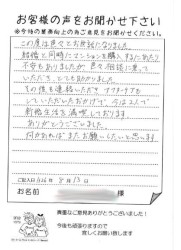 お客様の声をお聞かせ下さい
※今後の業務向上の為ご意見をお聞かせください。
この度は色々とお世話になりました。
結婚と同時にマンションを購入するにあたり
不安もありましたが、色々相談に乗って
いただき、とても助かりました。
その後も連絡いただき、アフターケアも
していただいたおかげで、今は2人で
新婚生活を満喫しております。
ありがとうございました。
何かあればまたお願いしたいと思います。
お名前
貴重なご意見ありがとうございました！
今後も頑張りますので
宜しくお願い致します